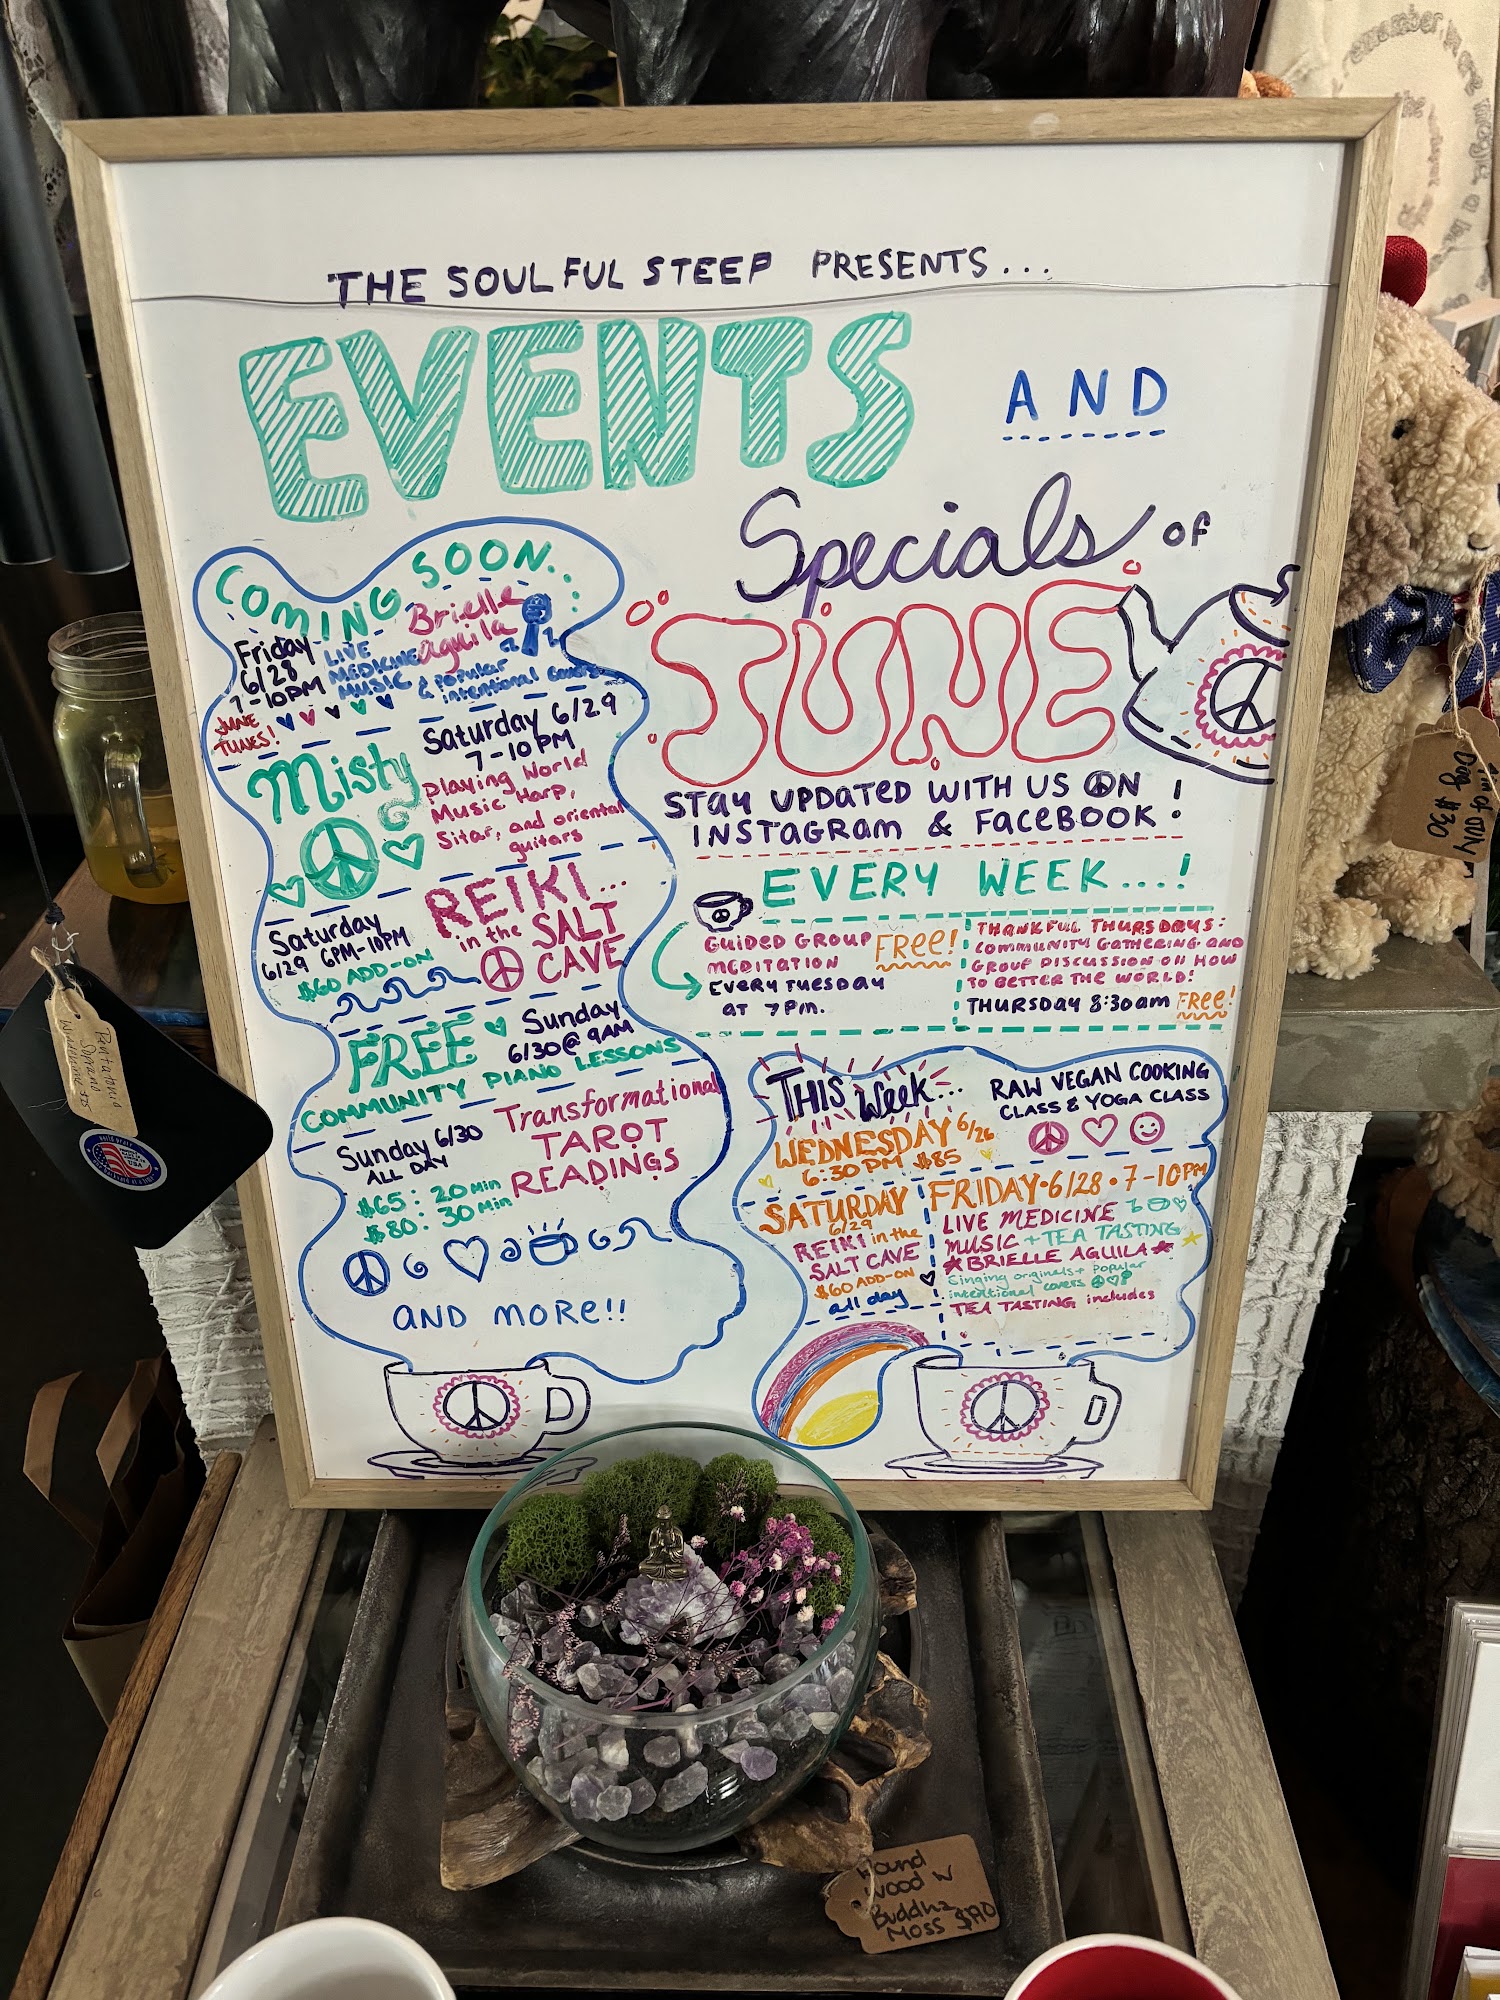 THE SOULFUL STEEP PRESENTS...
EVENTS
AND
Specials of
JUNE
STAY UPDATED WITH US ON
INSTAGRAM & FACEBOOK!
COMING SOON...
Friday
6/28
7-10PM
JUNE
TUNES!
LIVE
MEDICINE
MUSIC
Brielle
Aguila
& Popular
intentional covers
Misty
Saturday 6/29
7-10PM
Playing World
Music Harp,
Sitar, and oriental
guitars
Saturday
6/29 6PM-10PM
$60 ADD-ON
REIKI...
in the SALT
CAVE
FREE
Sunday
6/30@9AM
COMMUNITY PIANO LESSONS
Sunday 6/30
ALL DAY
$65: 20 Min
$80: 30 Min
Transformational
TAROT
READINGS
AND MORE!!
EVERY WEEK...!
GUIDED GROUP
MEDITATION
FREE!
EVERY TUESDAY
AT 7PM.
THANKFUL THURSDAYS:
COMMUNITY GATHERING AND
GROUP DISCUSSION ON HOW
TO BETTER THE WORLD!
THURSDAY 8:30am FREE!
THIS Week...
RAW VEGAN COOKING
CLASS & YOGA CLASS
WEDNESDAY 6/26
6:30PM $85
SATURDAY
6/29
REIKI in the
SALT CAVE
$60 ADD-ON
all day
FRIDAY·6/28·7-10PM
LIVE MEDICINE
MUSIC + TEA TASTING
BRIELLE AGUILA
Singing originals + Popular
intentional covers
TEA TASTING includes
Dog $30
Round
Wood W
Buddha
Moss